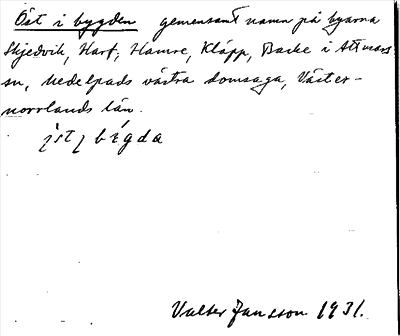 Öst i bygden gemensamt namn på byarna
Skjedvik, Harf, Hamre, Kläpp, Backe i Attmars
sn, Medelpads västra domsaga, Väster-
norrlands län.
bígda
Valter Jansson 1931.